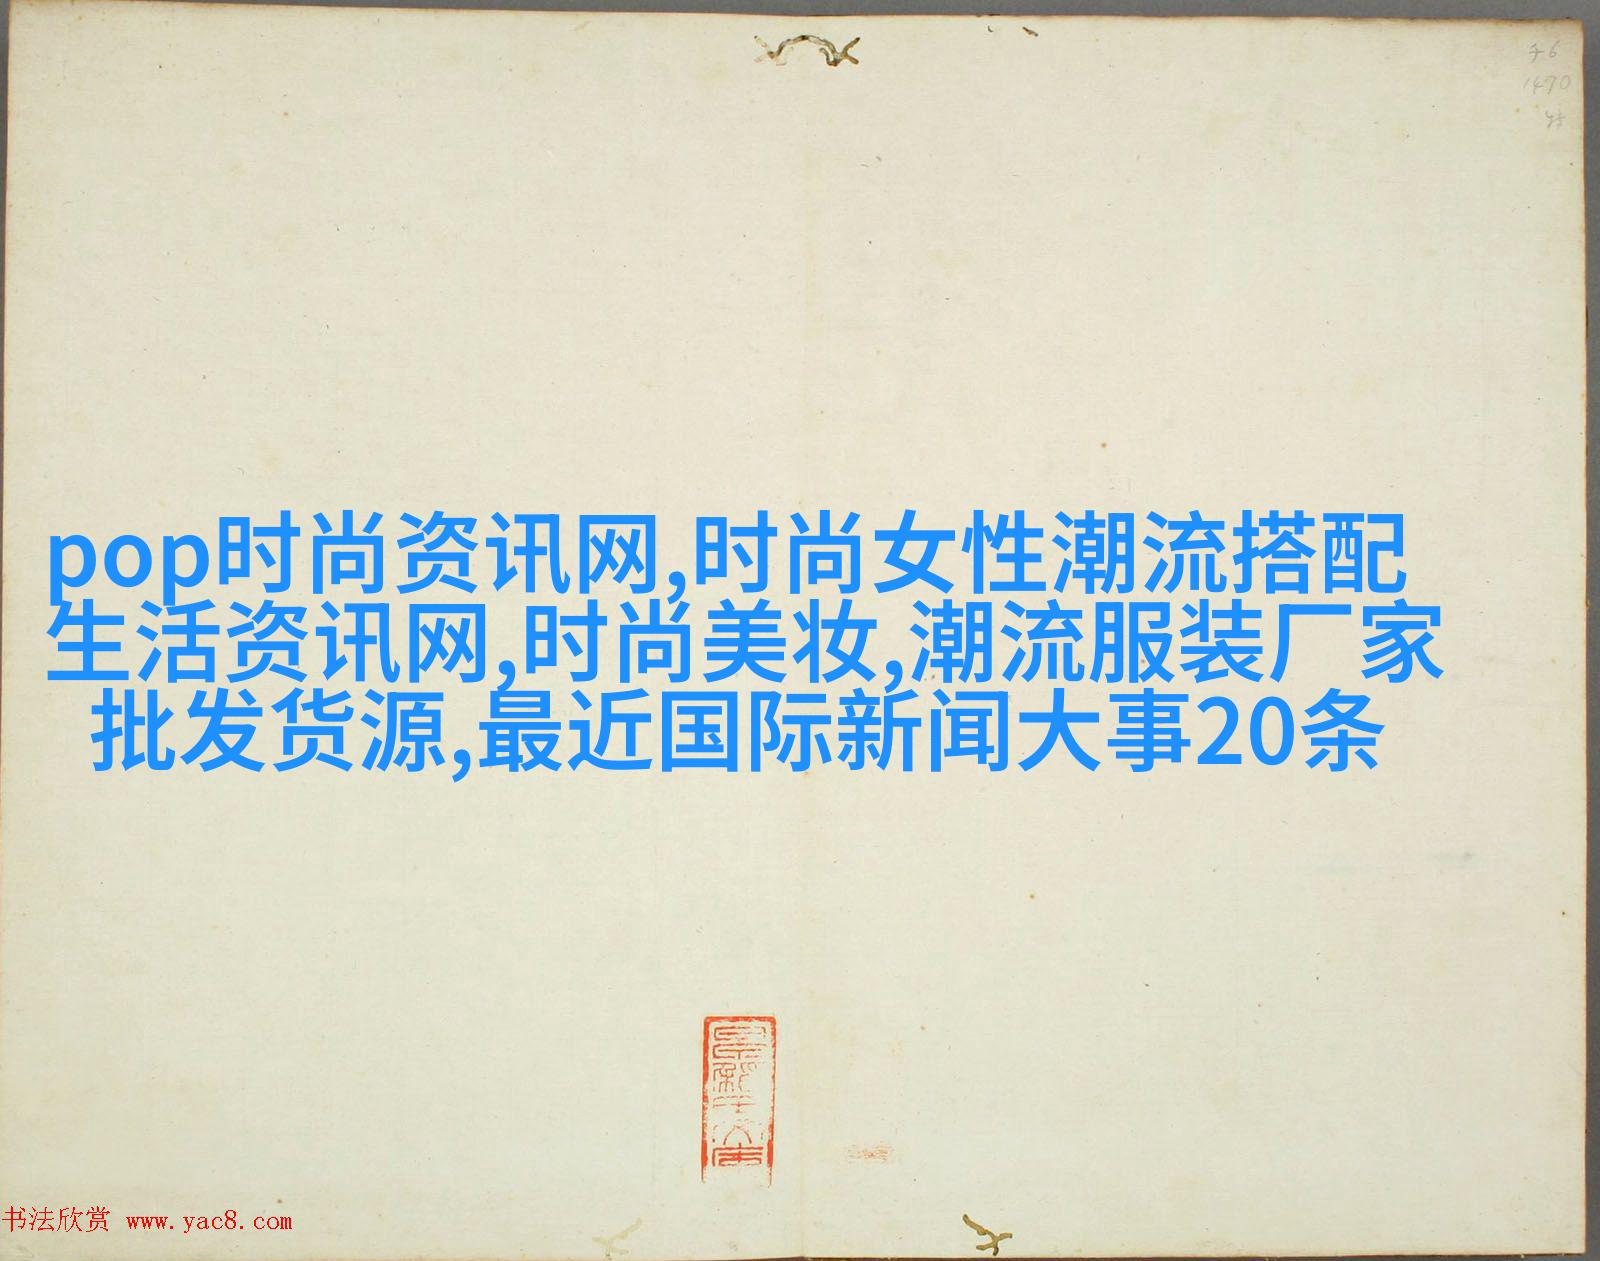 pop时尚资讯网,时尚女性潮流搭配
生活资讯网,时尚美妆,潮流服装厂家
批发货源,最近国际新闻大事20条
书法欣赏 www.yac8.com